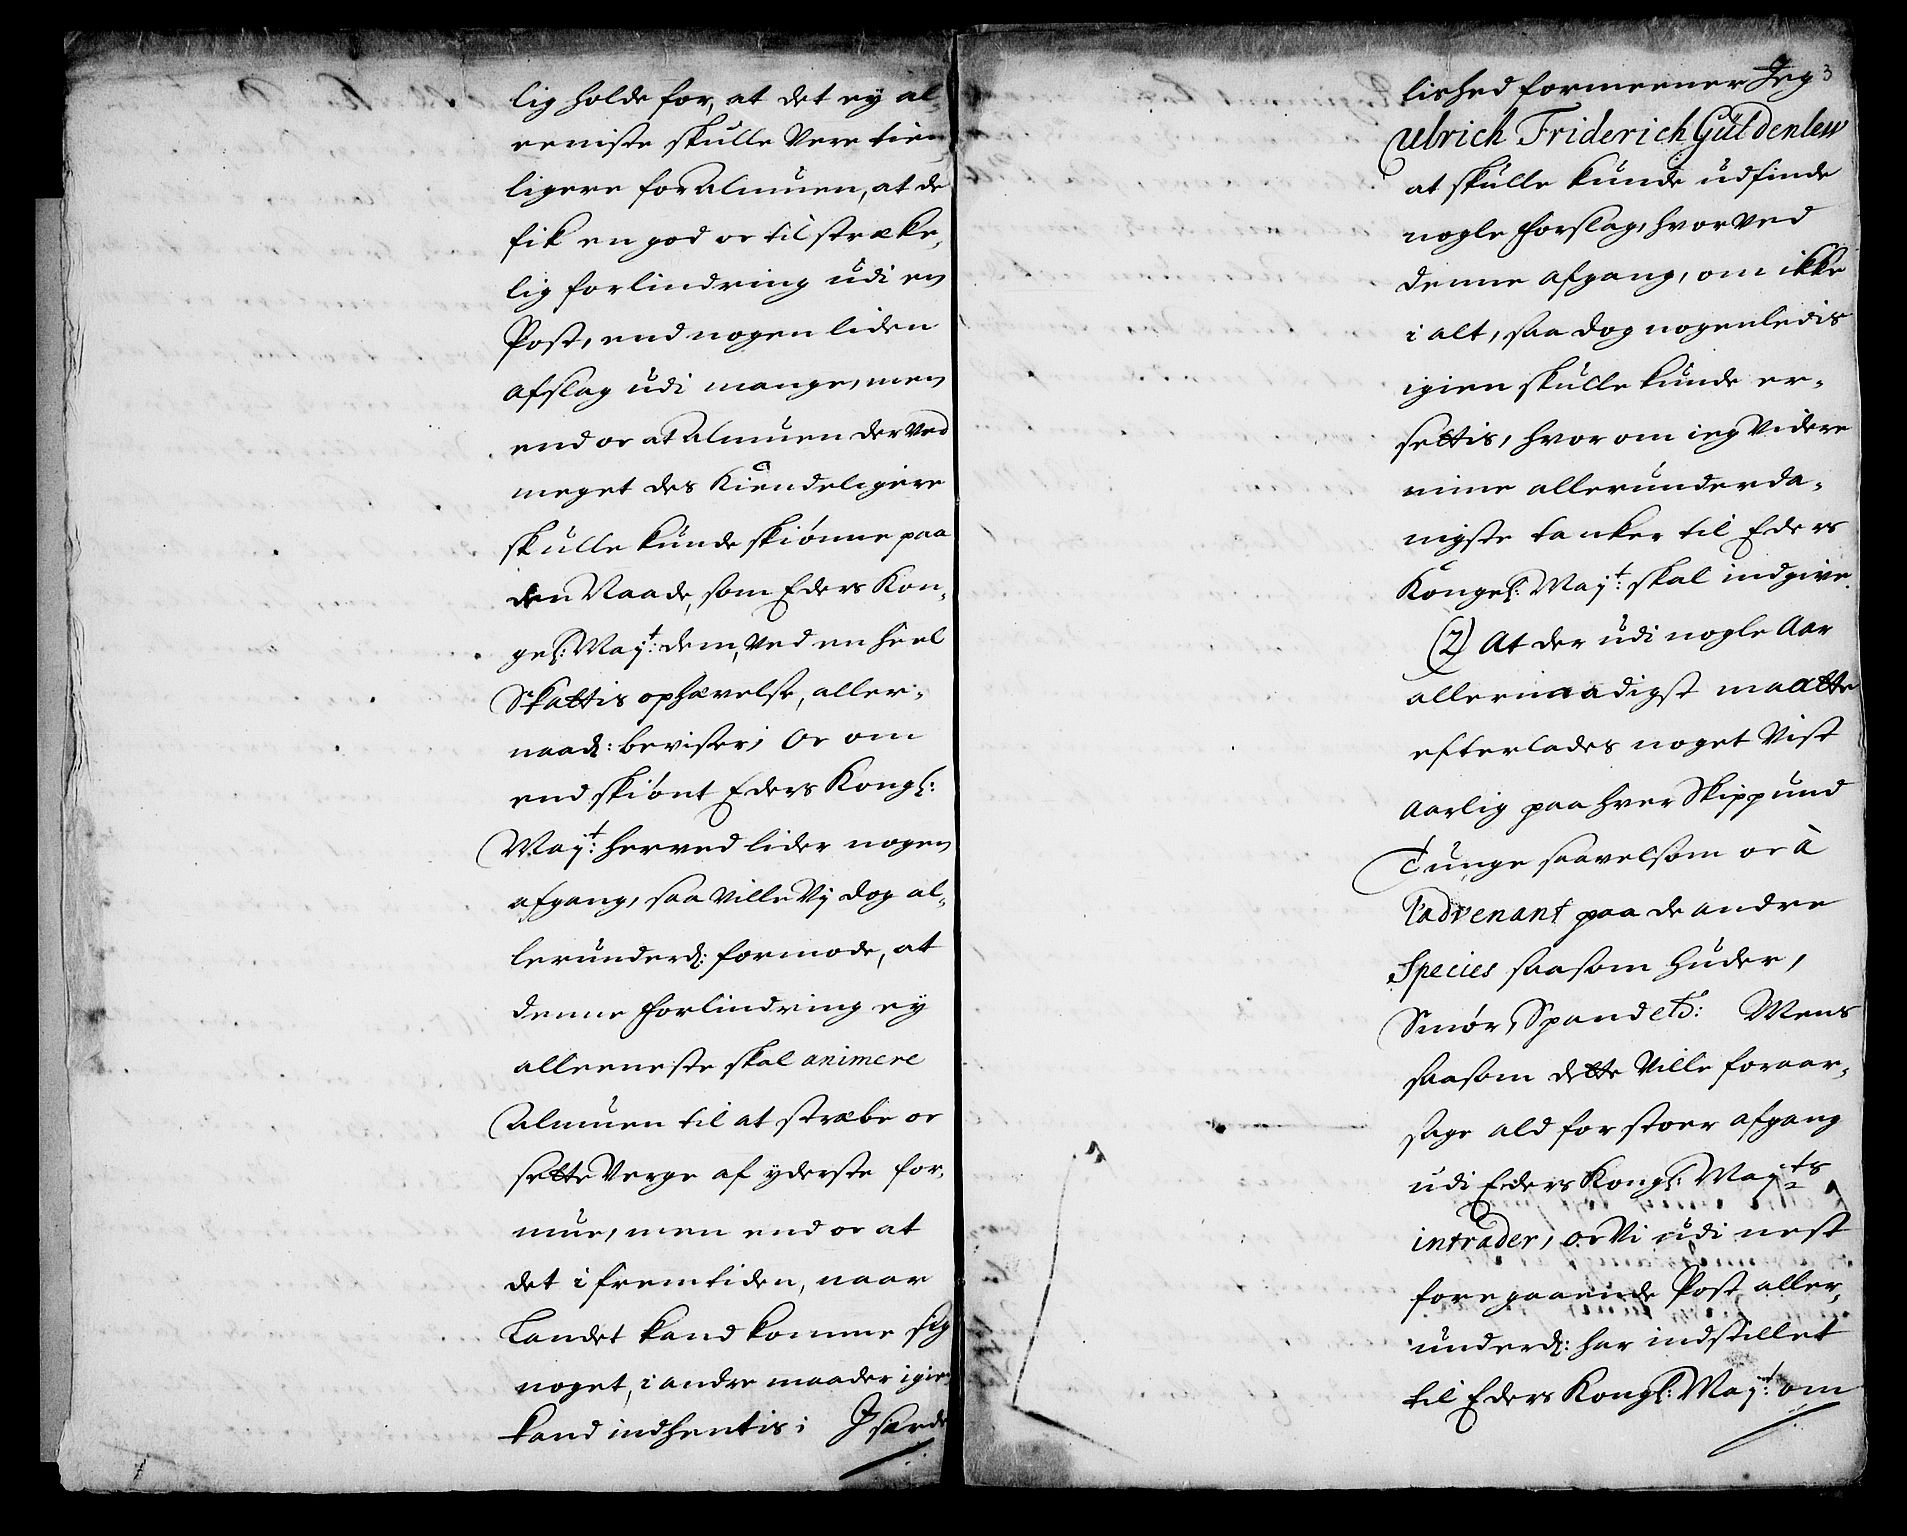 lig holde for, at det ey al„
eeniste skulle Vere tien„
ligere for Almuen, at de
fik en god oc tilstræke„
lig forlindring udi en
Post, end nogen liden
afslag udi mange, men
end oc at Almuen der ved
meget des Kiendeligere
skulle kunde skiønne paa
den Naade, som Eders Kon„
gel: Maÿt: dem, ved en heel
Skattis ophævelse, aller„
naad: beviser; Oc om
end skiønt Eders Kongl:
Maÿt: herved lider nogen
afgang, saa ville Vÿ dog al„
lerunderd: formode, at
denne forlindring eÿ
alleeneste skal animere
Almuen til at stræbe oc
sette Verge af yderste for„
mue, men end oc at
det i fremtiden, naar
Landet kand komme sig
noget, i andre maader igien
kand indhentis; Jsærde
lished formeener Jeg 3
Ulrich Friderich Güldenlew
at skulle kunde udfinde
nogle forslag, hvor ved
denne afgang, om ikke
i alt, saa dog nogenledis
igien skulle kunde er„
settis, hvor om ieg videre
mine allerunderda„
nigste tanker til Eders
Kongel: Maÿt: skal indgive
(2) At der udi nogle Aar
allernaadigst maatte
efterlades noget Vist
Aarlig paa hver Skippund
Tunge saavelsom oc à
l'advenant paa de andre
Species saasom Huder,
Smør, Spand etc: Mens
saasom dette Ville foraar„
sage ald for stoer afgang
udi Eders Kongl: Maÿts
intrader, oc Vi udi nest
foregaaende Post aller„
underd: har indstillet
til Eders Kongl: Maÿt: om